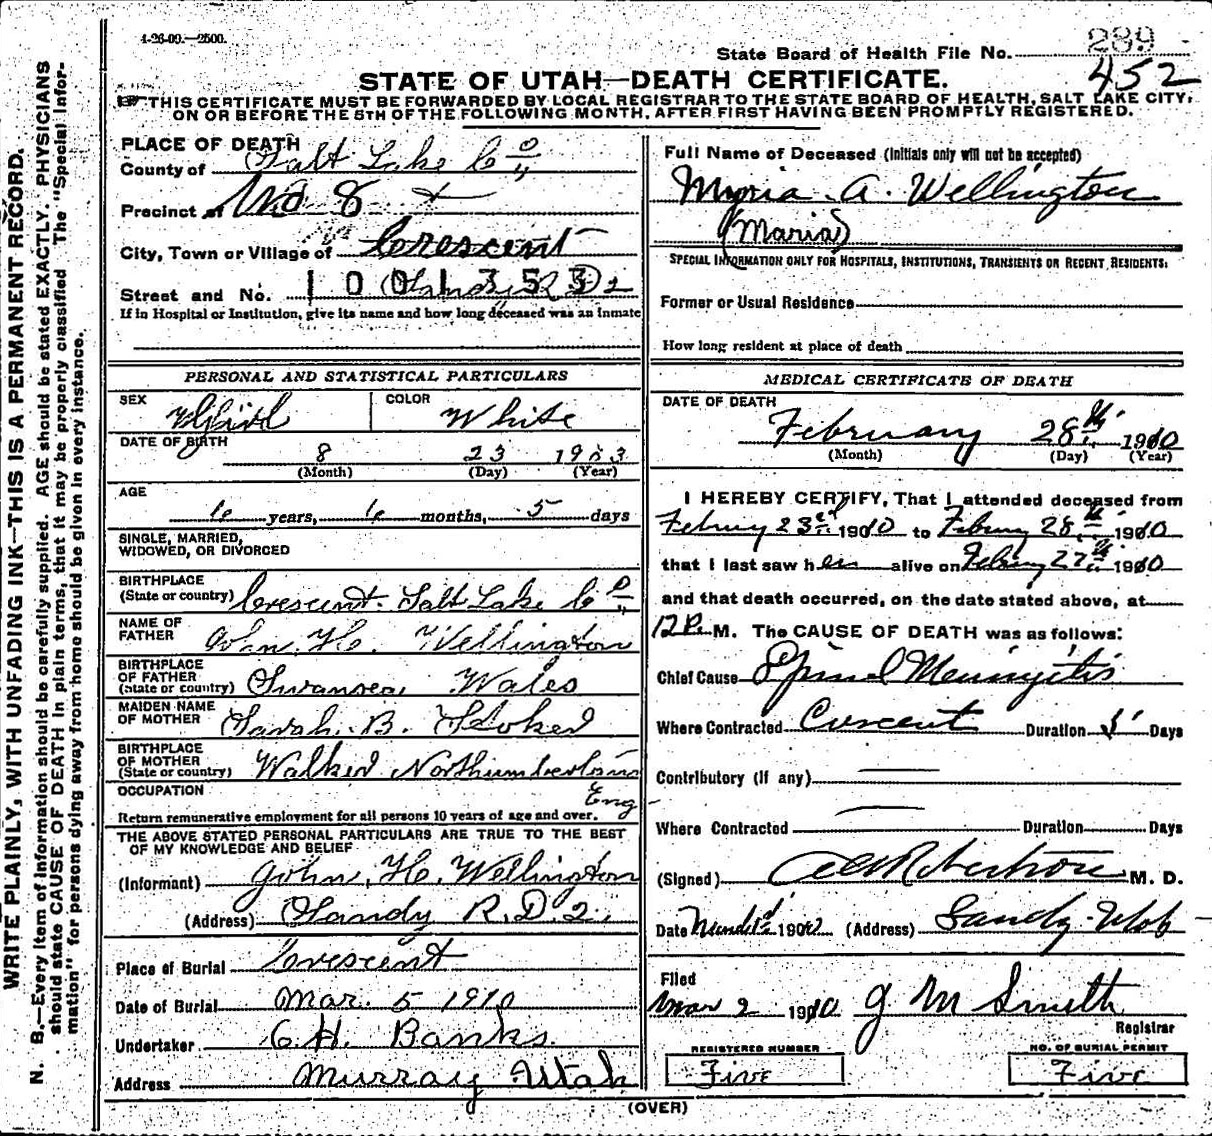 4-26-09.—2500.
State Board of Health File No. 289
452
STATE OF UTAH—DEATH CERTIFICATE.
THIS CERTIFICATE MUST BE FORWARDED BY LOCAL REGISTRAR TO THE STATE BOARD OF HEALTH, SALT LAKE CITY,
ON OR BEFORE THE 5TH OF THE FOLLOWING MONTH, AFTER FIRST HAVING BEEN PROMPTLY REGISTERED.
WRITE PLAINLY, WITH UNFADING INK—THIS IS A PERMANENT RECORD.
N. B.—Every item of information should be carefully supplied. AGE should be stated EXACTLY. PHYSICIANS
should state CAUSE OF DEATH in plain terms, that it may be properly classified. The "Special Infor-
mation" for persons dying away from home should be given in every instance.
PLACE OF DEATH
County of Salt Lake Co
Precinct of No 8
City, Town or Village of Crescent
Street and No. 1001353 Sandy R D 2
If in Hospital or Institution, give its name and how long deceased was an inmate
PERSONAL AND STATISTICAL PARTICULARS
SEX Girl
COLOR White
DATE OF BIRTH
8 23 1903
(Month) (Day) (Year)
AGE
6 years, 6 months, 5 days
SINGLE, MARRIED,
WIDOWED, OR DIVORCED
BIRTHPLACE
(State or country) Crescent. Salt Lake Co
NAME OF
FATHER John. H. Wellington
BIRTHPLACE
OF FATHER
(State or country) Swansea, Wales
MAIDEN NAME
OF MOTHER Sarah. B. Stoker
BIRTHPLACE
OF MOTHER
(State or country) Walker Northumberland
Eng
OCCUPATION
Return remunerative employment for all persons 10 years of age and over.
THE ABOVE STATED PERSONAL PARTICULARS ARE TRUE TO THE BEST
OF MY KNOWLEDGE AND BELIEF
(Informant) John. H. Wellington
(Address) Sandy R.D. 2.
Place of Burial Crescent
Date of Burial Mar. 5 1910
Undertaker C.H. Banks.
Address Murray Utah
Full Name of Deceased (Initials only will not be accepted)
Myria A. Wellington
(Maria)
SPECIAL INFORMATION ONLY FOR HOSPITALS, INSTITUTIONS, TRANSIENTS OR RECENT RESIDENTS:
Former or Usual Residence
How long resident at place of death
MEDICAL CERTIFICATE OF DEATH
DATE OF DEATH
February 28th 1910
(Month) (Day) (Year)
I HEREBY CERTIFY, That I attended deceased from
Febuary 23rd 1910 to Febuary 28th 1910
that I last saw her alive on Febuary 27th 1910
and that death occurred, on the date stated above, at
12 P. M. The CAUSE OF DEATH was as follows:
Chief Cause Spinal Meningitis
Where Contracted Crescent Duration 5 Days
Contributory (if any)
Where Contracted Duration Days
(Signed) Robertson M. D.
Date March 1910 (Address) Sandy Utah
Filed
Mar 2 1910 J M Smith
Registrar
REGISTERED NUMBER
Five
NO. OF BURIAL PERMIT
Five
(OVER)